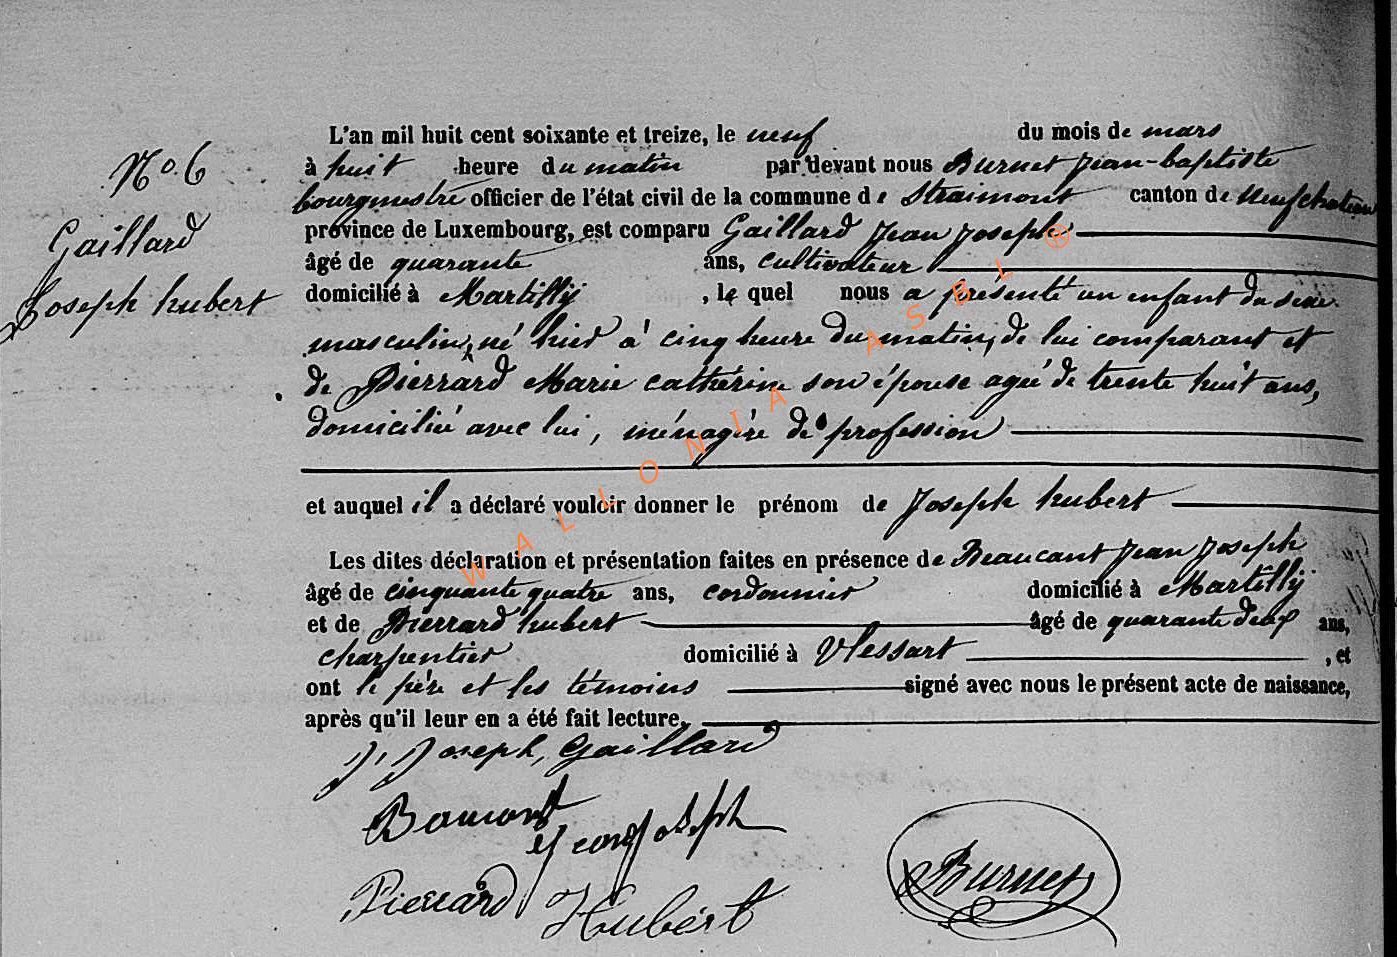 N° 6
Gaillard
Joseph hubert
L'an mil huit cent soixante et treize, le neuf du mois de mars
à huit heure du matin par devant nous Burnet Jean-baptiste
bourgmestre officier de l'état civil de la commune de Straimont canton de neufchateau
province de Luxembourg, est comparu Gaillard Jean Joseph
âgé de quarante ans, cultivateur
domicilié à Martilly , le quel nous a présenté un enfant du sexe
masculin, né hier à cinq heure du matin, de lui comparant et
de Pierrard Marie catherine son épouse agée de trente huit ans,
domiciliée avec lui, ménagère de profession
et auquel il a déclaré vouloir donner le prénom de Joseph hubert
Les dites déclaration et présentation faites en présence de Beaucant Jean Joseph
âgé de cinquante quatre ans, cordonnier domicilié à Martilly
et de Pierrard hubert âgé de quarante deux ans,
charpentier domicilié à Vlessart , et
ont le père et les témoins signé avec nous le présent acte de naissance,
après qu'il leur en a été fait lecture.
J. Joseph, Gaillard
Jean joseph
Pierrard Hubert
Burnet
WALLONIA ASBL ®